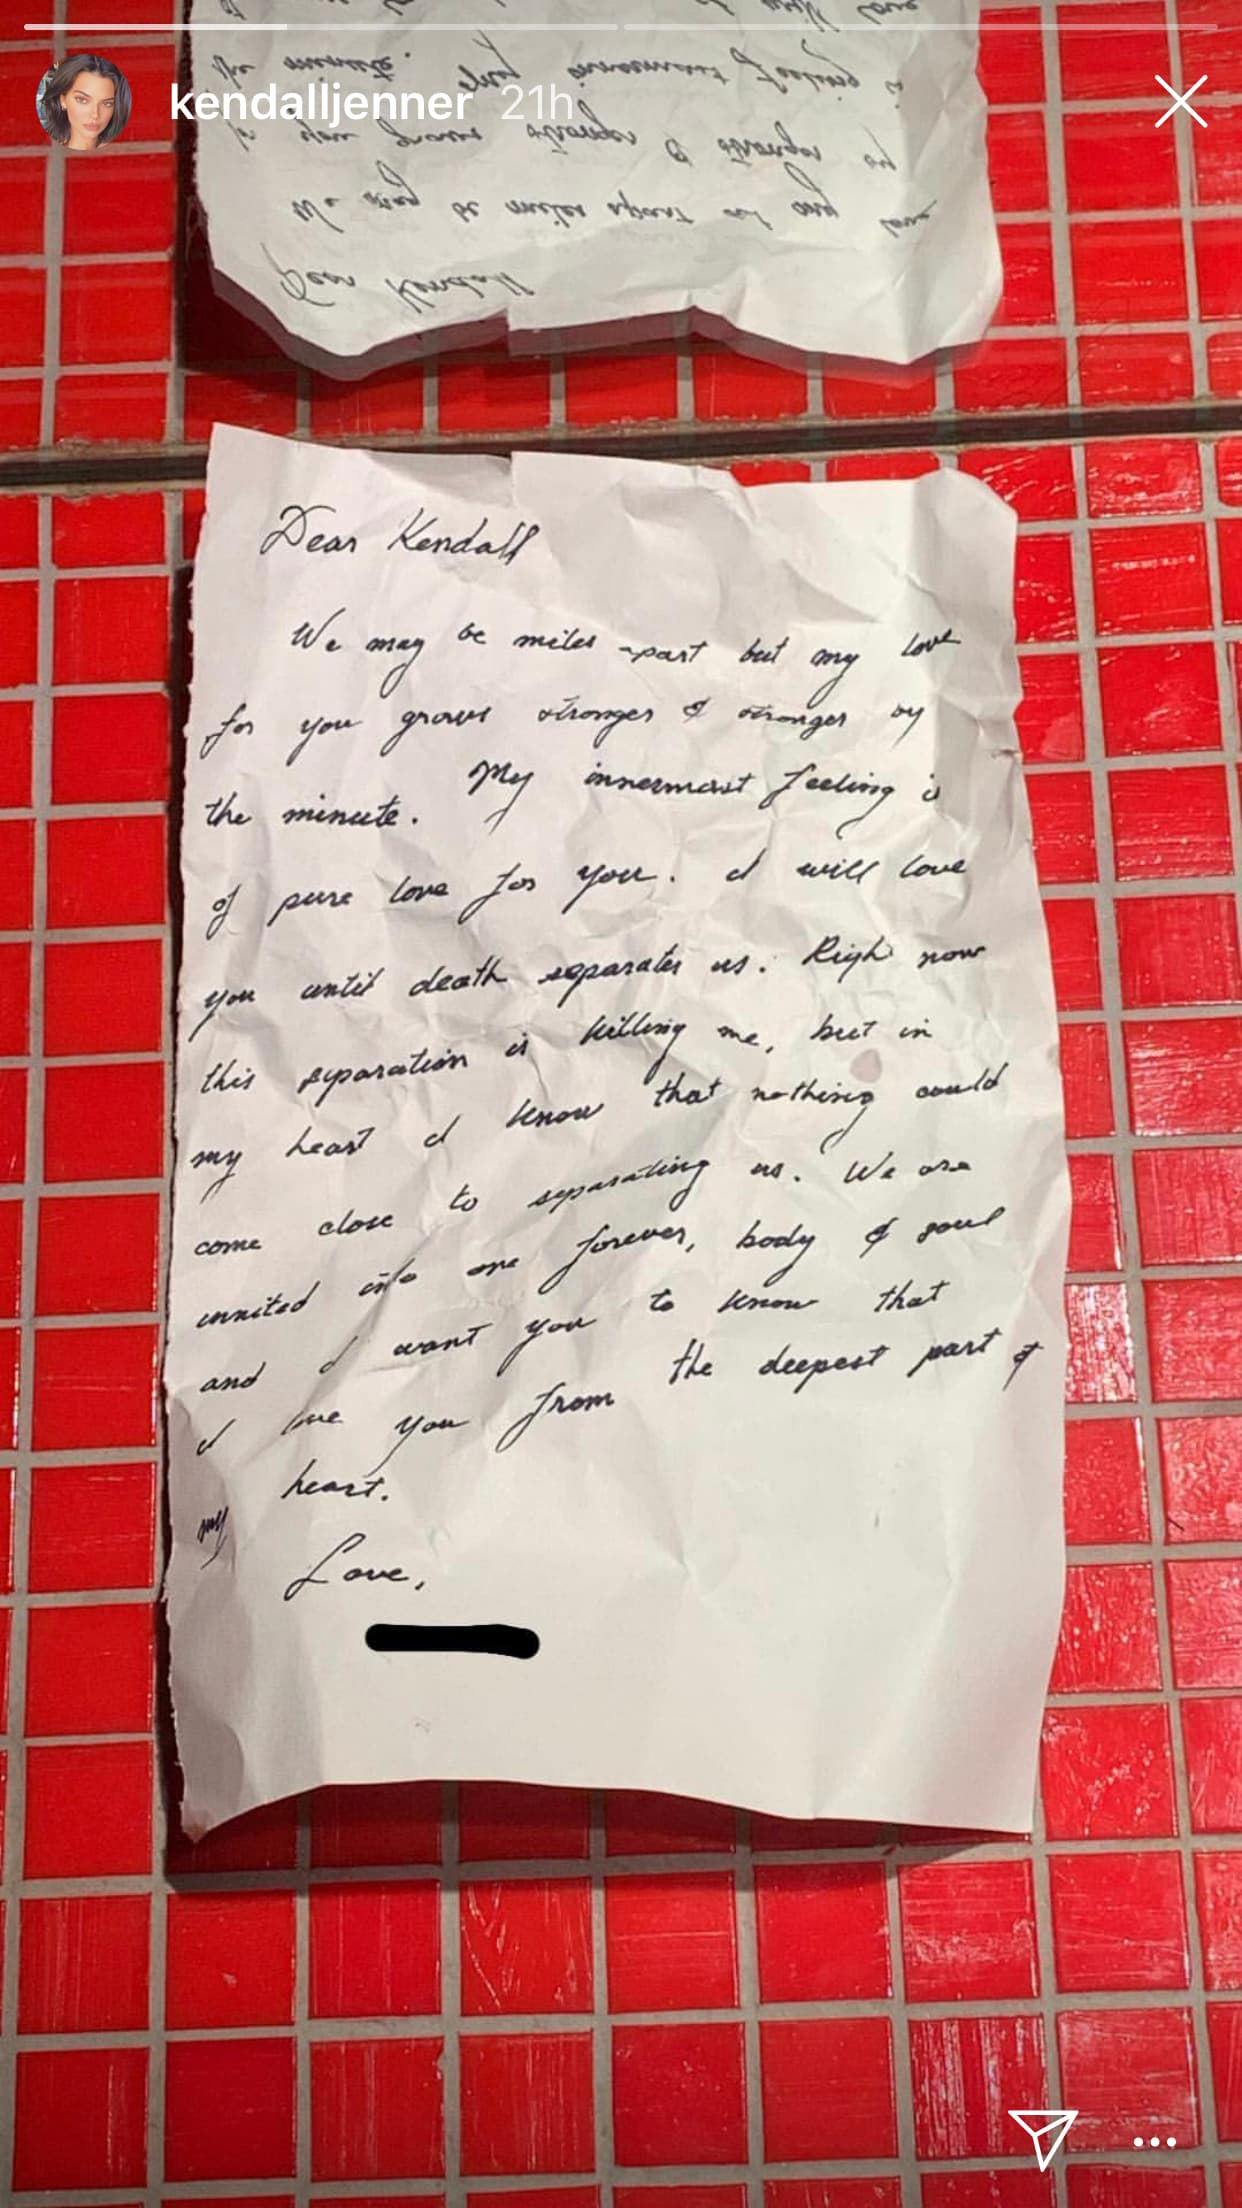 kendalljenner 21h
Dear Kendall
We may be miles apart but my love
for you grows stronger & stronger by
the minute. My innermost feeling is
of pure love for you. I will love
you until death separates us. Righ now
this separation is killing me, but in
my heart I know that nothing could
come close to separating us. We are
unnited into one forever, body & soul
and I want you to know that
I love you from the deepest part of
my heart.
Love,